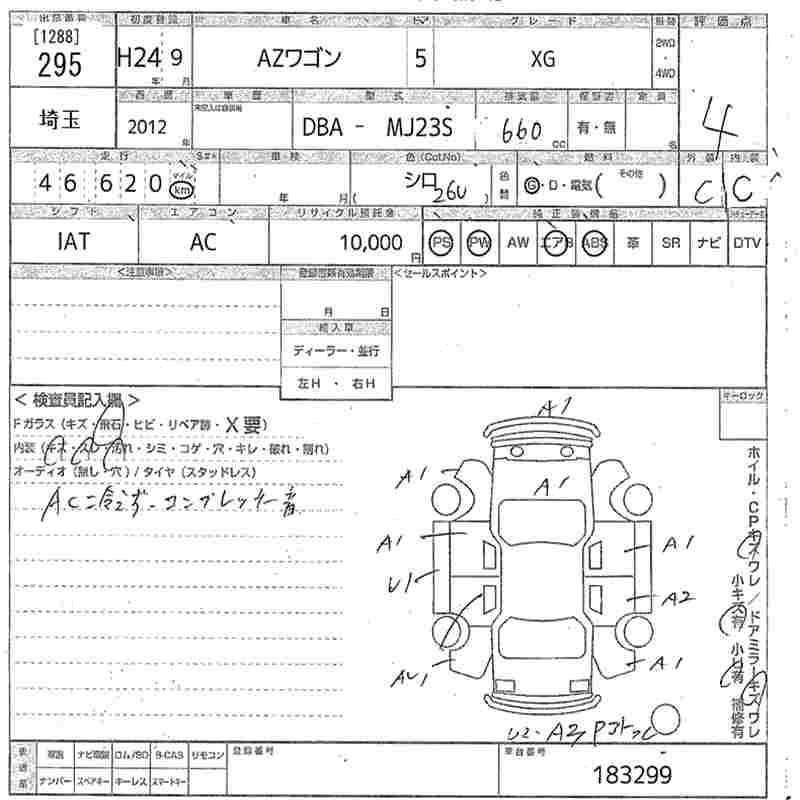 出品番号 初度登録 車名 ドア グレード 評価点
[1288]
295
H24 9 AZワゴン 5 XG
年 月
2WD
・
4WD
埼玉
西暦 車歴 型式 排気量 定員
2012 年 DBA - MJ23S 660 cc 有・無 名
4
走行 車検 色(Col.No) 燃料 外装 内装
46 620 マイル km 年 月 シロ 26U 色替 G・D・電気( その他 ) C C
シフト エアコン リサイクル預託金 純正装備品
IAT AC 10,000 円 PS PW AW エアB ABS 革 SR ナビ DTV
<注意事項> 登録書類有効期限 <セールスポイント>
月 日
輸入車
ディーラー・並行
左H ・ 右H
キーロック
< 検査員記入欄 >
Fガラス (キズ・飛石・ヒビ・リペア跡・X要)
内装 (キズ・スレ・汚れ・シミ・コゲ・穴・キレ・破れ・割れ)
オーディオ (無し・穴) / タイヤ (スタッドレス)
AC冷えず・コンプレッサー音
A1
A1
A1
A1
A1
U1
A2
A1
U2・A2
ホイル・CPキズワレ / ドアミラーキズワレ
小キズ有 小凹有 補修有
取説 ナビ取説 ロム/SD B-CAS リモコン 登録番号 車台番号
ナンバー スペアキー キーレス スマートキー
183299